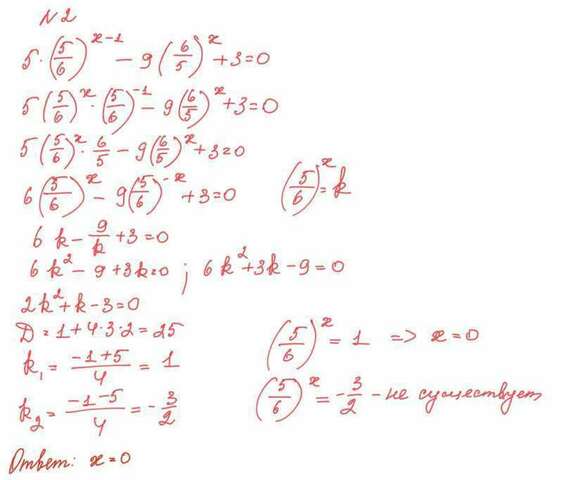 N2
5·(5/6)^(x-1) - 9(6/5)^x + 3 = 0
5(5/6)^x · (5/6)^(-1) - 9(6/5)^x + 3 = 0
5(5/6)^x · 6/5 - 9(6/5)^x + 3 = 0
6(5/6)^x - 9(5/6)^(-x) + 3 = 0
(5/6)^x = k
6k - 9/k + 3 = 0
6k² - 9 + 3k = 0 ; 6k² + 3k - 9 = 0
2k² + k - 3 = 0
D = 1 + 4·3·2 = 25
k₁ = (-1+5)/4 = 1
k₂ = (-1-5)/4 = -3/2
(5/6)^x = 1 => x = 0
(5/6)^x = -3/2 - не существует
Ответ: x = 0